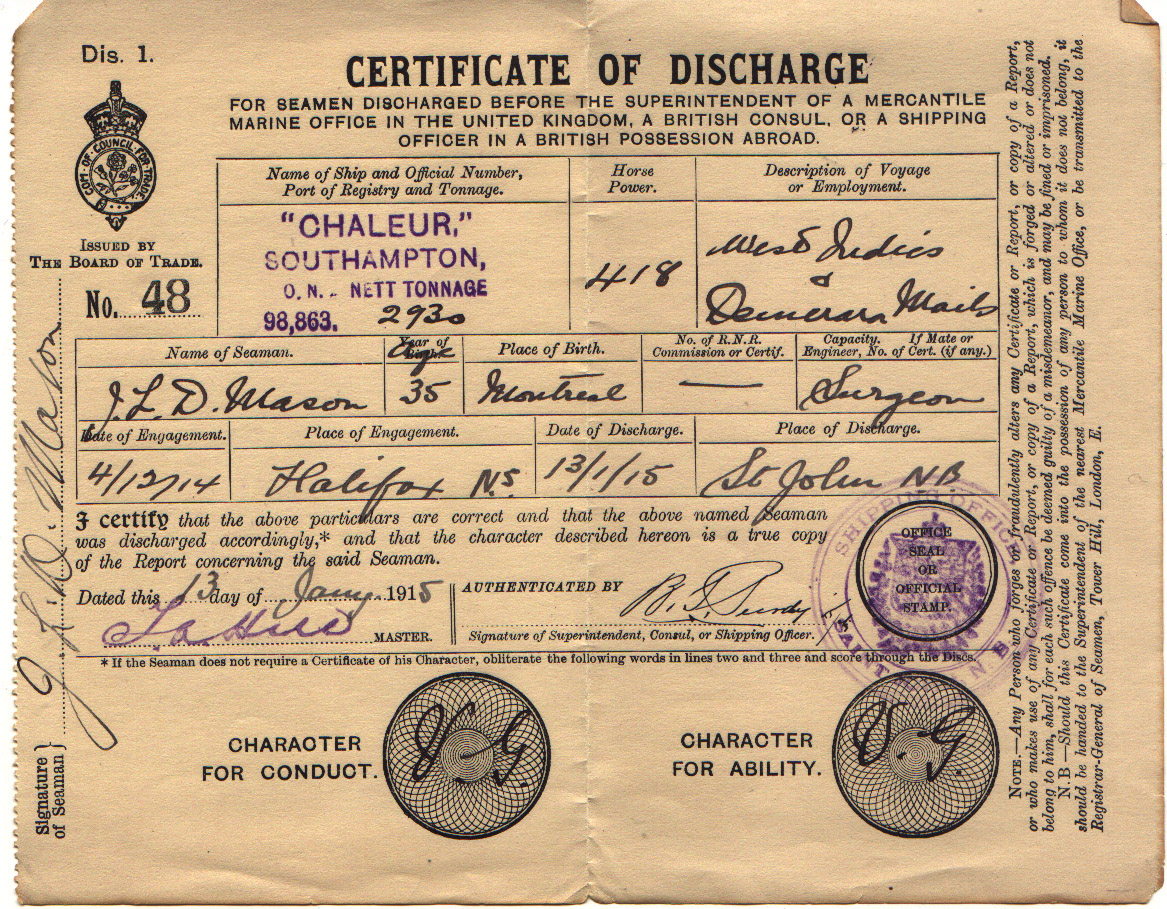 Dis. 1.
CERTIFICATE OF DISCHARGE
FOR SEAMEN DISCHARGED BEFORE THE SUPERINTENDENT OF A MERCANTILE
MARINE OFFICE IN THE UNITED KINGDOM, A BRITISH CONSUL, OR A SHIPPING
OFFICER IN A BRITISH POSSESSION ABROAD.
COM. OF COUNCIL FOR TRADE
ISSUED BY
THE BOARD OF TRADE.
No. 48
Name of Ship and Official Number,
Port of Registry and Tonnage.
Horse
Power.
Description of Voyage
or Employment.
"CHALEUR,"
SOUTHAMPTON,
O.N. - NETT TONNAGE
98,863. 2930
418
West Indies
&
Demerara Mails
Name of Seaman.
Year of Birth. Age
Place of Birth.
No. of R.N.R.
Commission or Certif.
Capacity. If Mate or
Engineer, No. of Cert. (if any.)
J. L. D. Mason
35
Montreal
—
Surgeon
Date of Engagement.
Place of Engagement.
Date of Discharge.
Place of Discharge.
4/12/14
Halifax N.S
13/1/15
St John NB
I certify that the above particulars are correct and that the above named Seaman
was discharged accordingly,* and that the character described hereon is a true copy
of the Report concerning the said Seaman.
Dated this 13 day of Jany 1915
MASTER.
AUTHENTICATED BY
Signature of Superintendent, Consul, or Shipping Officer.
OFFICE
SEAL
OR
OFFICIAL
STAMP.
SHIPPING OFFICE
SAINT N B
* If the Seaman does not require a Certificate of his Character, obliterate the following words in lines two and three and score through the Discs.
CHARACTER
FOR CONDUCT.
V. G.
CHARACTER
FOR ABILITY.
V. G.
Signature
of Seaman
J. L. D. Mason
NOTE.—Any Person who forges or fraudulently alters any Certificate or Report, or copy of a Report,
or who makes use of any Certificate or Report, or copy of a Report, which is forged or altered or does not
belong to him, shall for each such offence be deemed guilty of a misdemeanor, and may be fined or imprisoned.
N.B—Should this Certificate come into the possession of any person to whom it does not belong, it
should be handed to the Superintendent of the nearest Mercantile Marine Office, or be transmitted to the
Registrar-General of Seamen, Tower Hill, London, E.